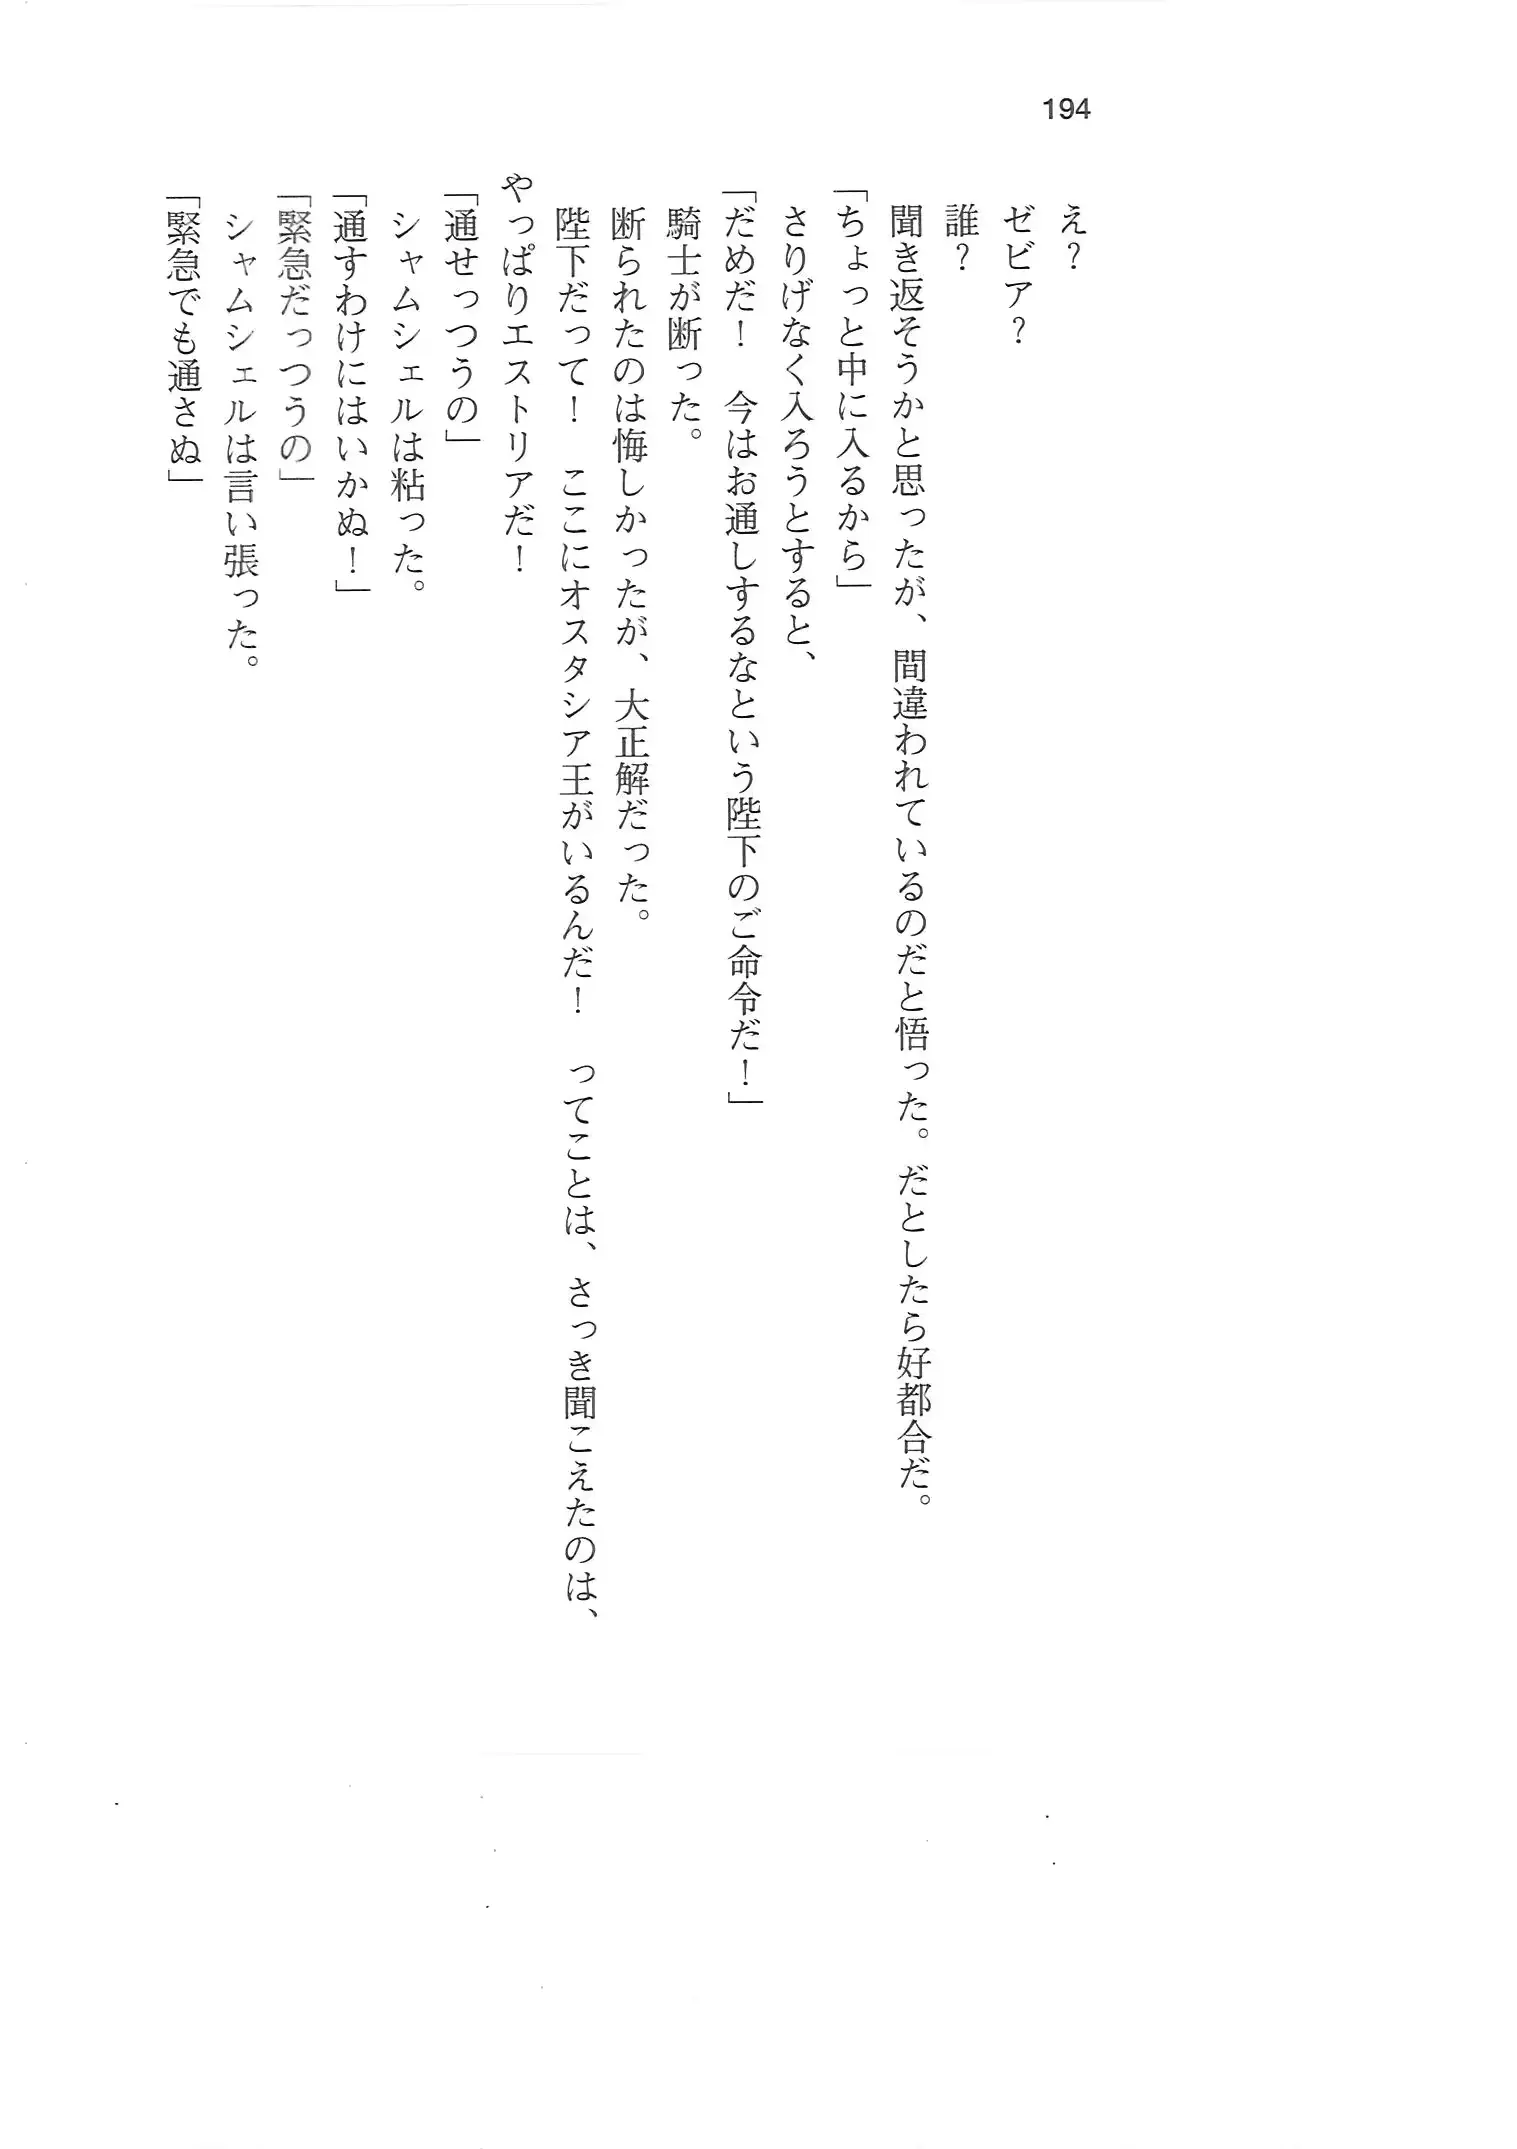 194
え？
ゼビア？
誰？
聞き返そうかと思ったが、間違われているのだと悟った。だとしたら好都合だ。
「ちょっと中に入るから」
さりげなく入ろうとすると、
「だめだ！　今はお通しするなという陛下のご命令だ！」
騎士が断った。
断られたのは悔しかったが、大正解だった。
陛下だって！　ここにオスタシア王がいるんだ！　ってことは、さっき聞こえたのは、
やっぱりエストリアだ！
「通せっつうの」
シャムシェルは粘った。
「通すわけにはいかぬ！」
「緊急だっつうの」
シャムシェルは言い張った。
「緊急でも通さぬ」